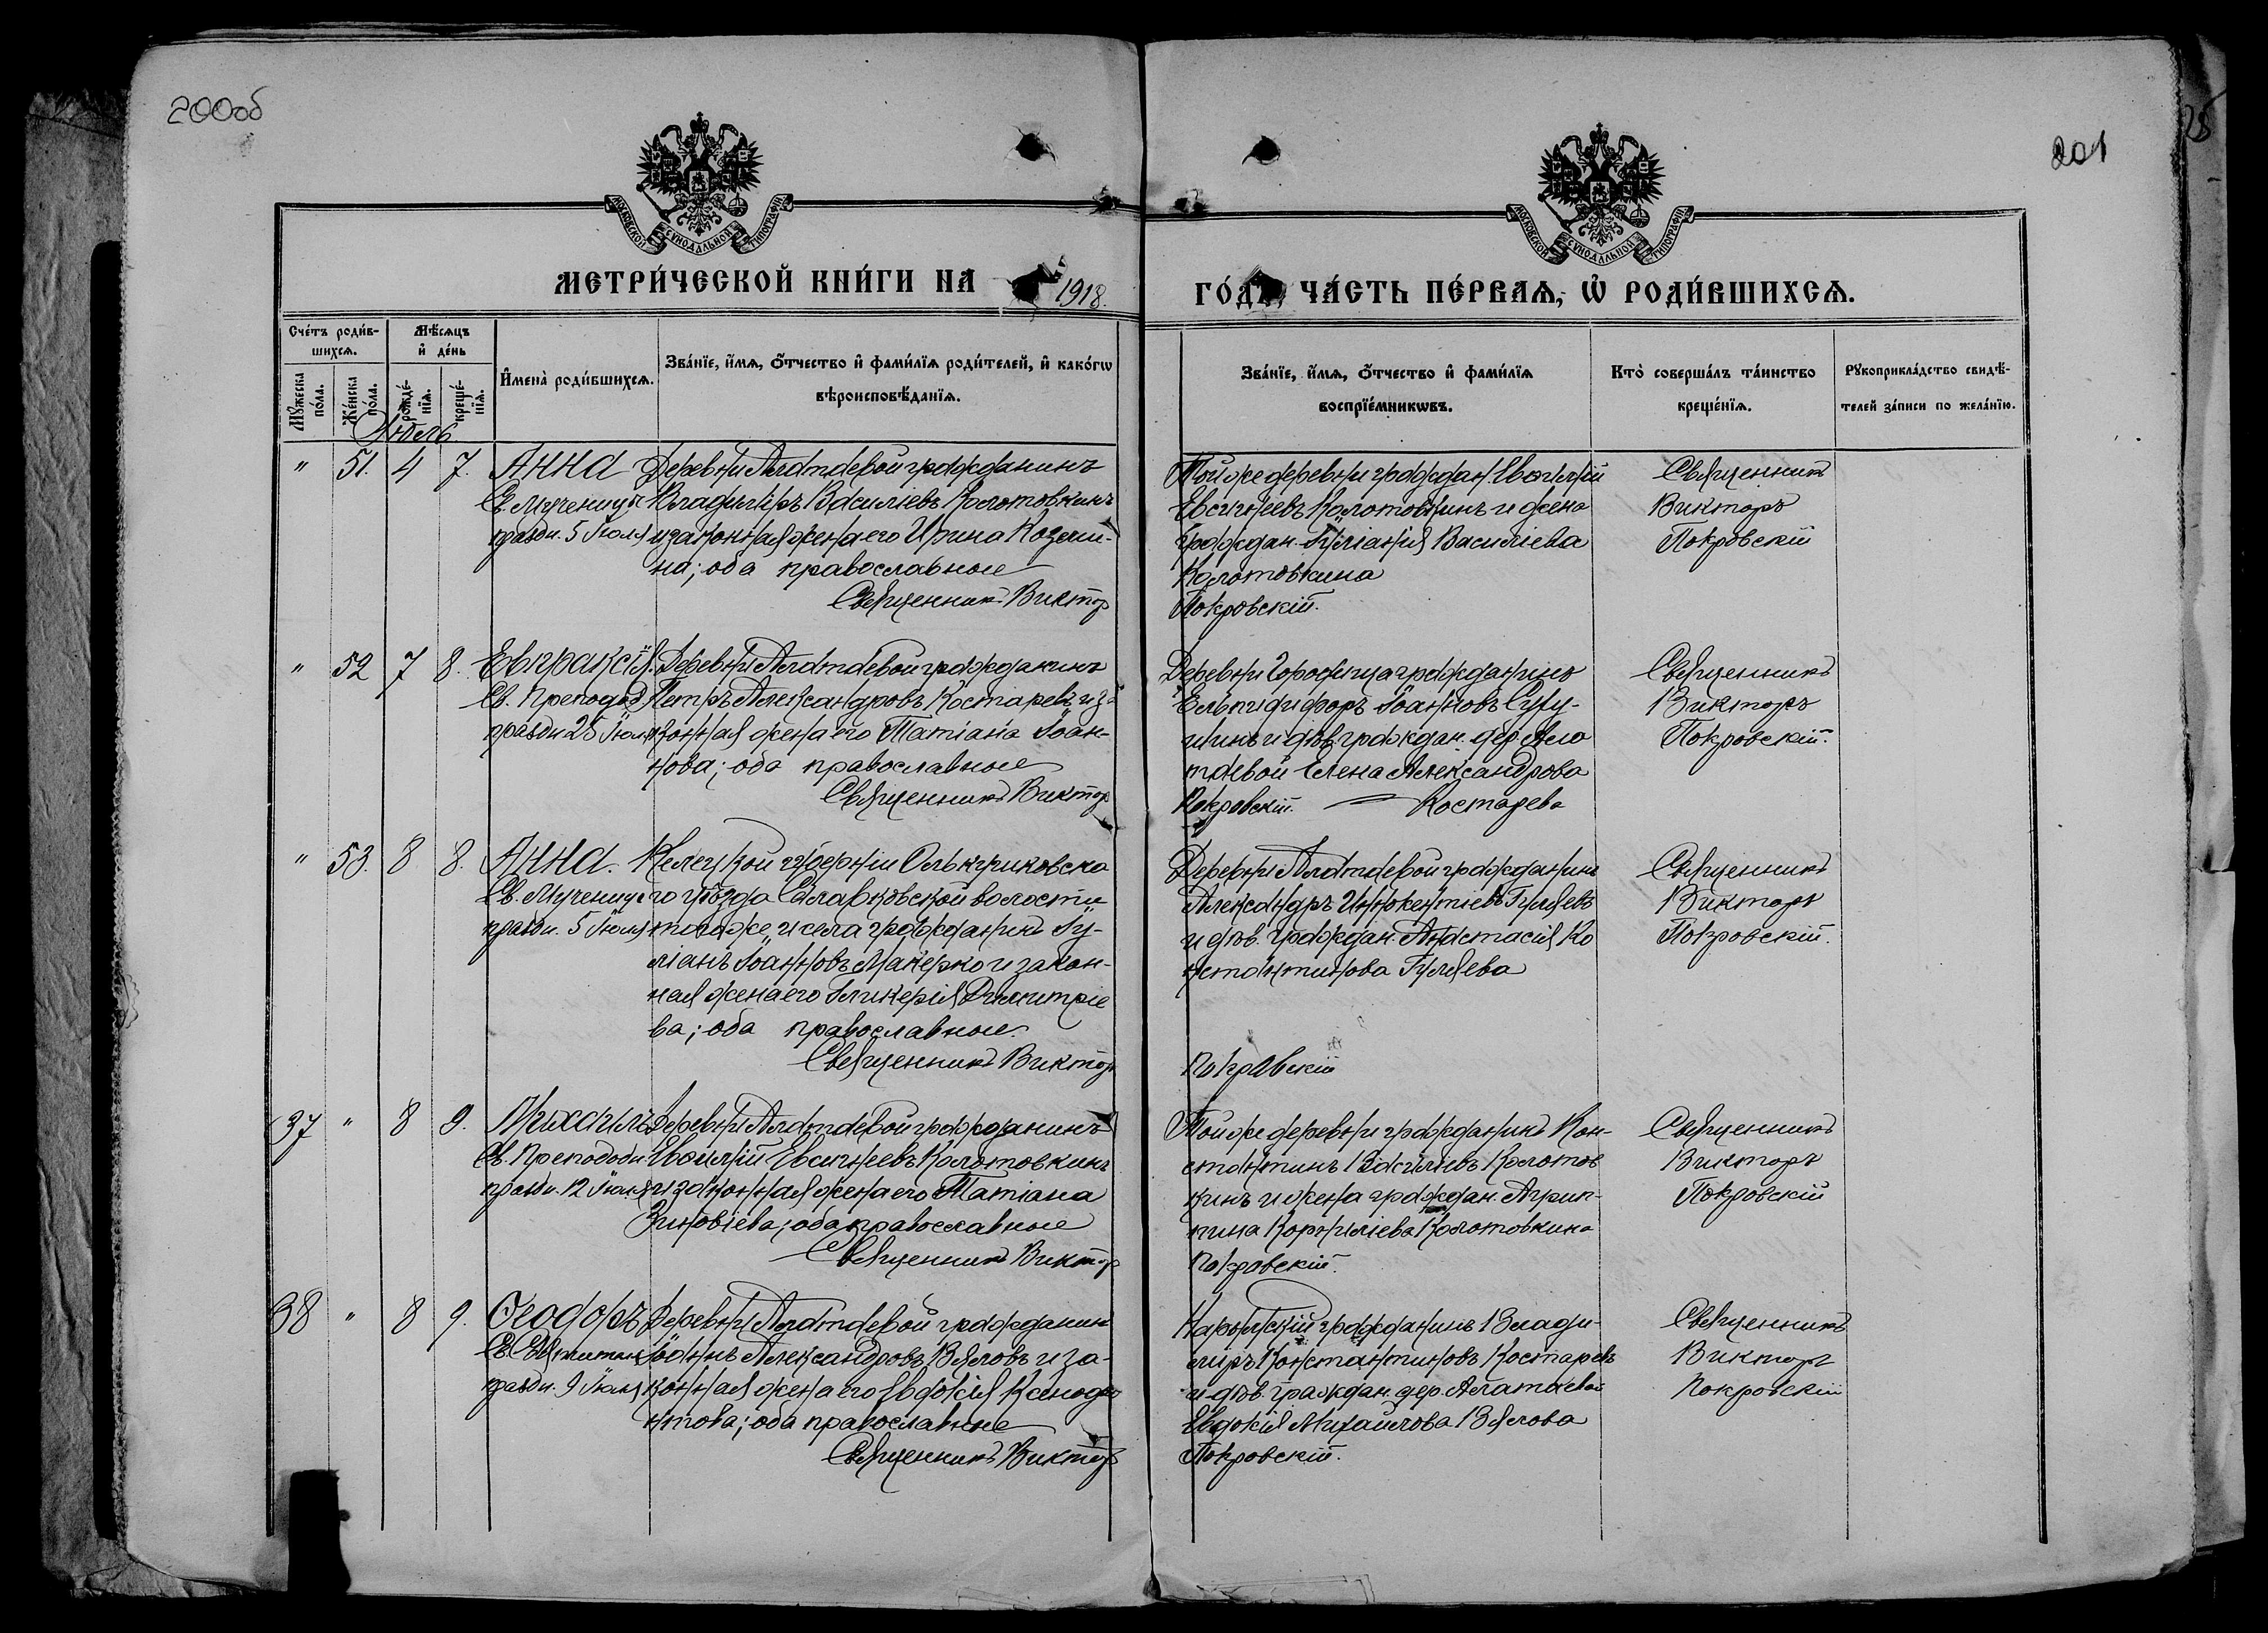 200об
201
МОСКОВСКОЙ СѴНОДАЛЬНОЙ ТИПОГРАФІИ
МОСКОВСКОЙ СѴНОДАЛЬНОЙ ТИПОГРАФІИ
МЕТРИ́ЧЕСКОЙ КНИ́ГИ НА 1918.
ГО́ДЪ, ЧА́СТЬ ПЕ́РВАѦ, Ѡ҆ РОДИ́ВШИХСѦ.
Сче́тъ роди́в-
шихсѧ.
Мѣ́сѧцъ
и҆ де́нь
Мꙋ́жеска по́ла.
Же́нска по́ла.
рожде́-
нїѧ.
креще́-
нїѧ.
И҆мена̀ роди́вшихсѧ.
Зва́нїе, и҆́мѧ, ѻ҆́тчество и҆ фами́лїѧ роди́телей, и҆ како́гѡ
вѣроисповѣ́данїѧ.
Зва́нїе, и҆́мѧ, ѻ҆́тчество и҆ фами́лїѧ
воспрїе́мникѡвъ.
Кто̀ соверша́лъ та́инство
креще́нїѧ.
Рꙋкоприкла́дство свидѣ́-
телей за́писи по жела́нїю.
Іюль
" 51. 4 7. Анна
Св. Мученицы
праздн. 5 Іюля
Деревни Алатаевой гражданинъ
Владиміръ Василіевъ Колотовкинъ
и законная жена его Ирина Козьми-
на; оба православные
Священникъ Виктор
Той же деревни граждан. Евѳимій
Евсигнеевъ Колотовкинъ и жена
граждан. Іуліанія Василіева
Колотовкина
Покровскій.
Священникъ
Викторъ
Покровскій
" 52 7 8. Евпраксія.
Св. Преподоб
праздн 25 Іюля
Деревни Алатаевой гражданинъ
Петръ Александровъ Костаревъ и за-
конная жена его Татіана Іоан-
нова; оба православные
Священникъ Виктор
Деревни Городища гражданинъ
Елпидифоръ Іоанновъ
и дѣв. граждан. дер. Ала
таевой Елена Александрова
Покровскій. Костарева
Священникъ
Викторъ
Покровскій.
" 53. 8 8. Анна.
Св. Мученицы
праздн. 5 Іюля
Келецкой губерніи Олькушковска
го уѣзда Славковской волости
того же и села гражданинъ Іу-
ліанъ Іоанновъ и закон-
ная жена его Гликерія Димитріе
ва; оба православные.
Священникъ Виктор
Деревни Алатаевой гражданинъ
Александръ Иннокентіевъ Гуляевъ
и дѣв. граждан. Анастасія Ко
нстантинова Гуляева
Покровскій
Священникъ
Викторъ
Покровскій.
37 " 8 9. Михаилъ
Св. Преподобн
праздн. 12 Іюля
Деревни Алатаевой гражданинъ
Евѳимій Евсигнеевъ Колотовкинъ
и законная жена его Татіана
Зиновіева; оба православные
Священникъ Виктор
Той же деревни гражданинъ Кон-
стантинъ Василіевъ Колотов
кинъ и жена граждан. Агрип-
пина Корниліева Колотовкина
Покровскій.
Священникъ
Викторъ
Покровскій
38 " 8 9. Ѳеодоръ
Св.
праздн. 9 Іюля
Деревни Алатаевой гражданинъ
Іоаннъ Александровъ Вяловъ и за-
конная жена его Евдокія
нтова; оба православные
Священникъ Викторъ
Нарымскій гражданинъ Влади-
міръ Константиновъ Костаревъ
и дѣв. граждан. дер. Алатаевой
Евдокія Михайлова Вялова
Покровскій.
Священникъ
Викторъ
Покровскій